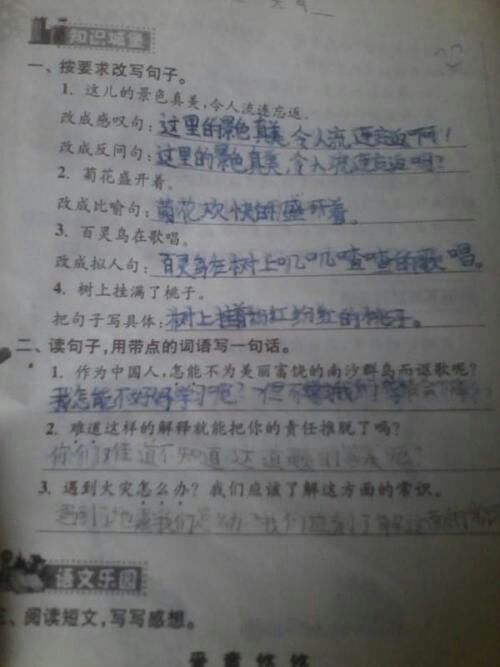 知识城堡
一、按要求改写句子。
1. 这儿的景色真美,令人流连忘返。
改成感叹句:这里的景色真美,令人流连忘返啊!
改成反问句:这里的景色真美,令人流连忘返吗?
2. 菊花盛开着。
改成比喻句:菊花欢快的盛开着。
3. 百灵鸟在歌唱。
改成拟人句:百灵鸟在树上叽叽喳喳的歌唱。
4. 树上挂满了桃子。
把句子写具体:树上挂着粉红粉红的桃子。
二、读句子,用带点的词语写一句话。
1. 作为中国人,怎能不为美丽富饶的南沙群岛而讴歌呢?
我怎能不好好学习呢?
2. 难道这样的解释就能把你的责任推脱了吗?
你们难道不知道这道题的答案吗?
3. 遇到火灾怎么办?我们应该了解这方面的常识。
遇到了地震我们怎么办?我们应该了解这方面的常识
语文乐园
三、阅读短文,写写感想。